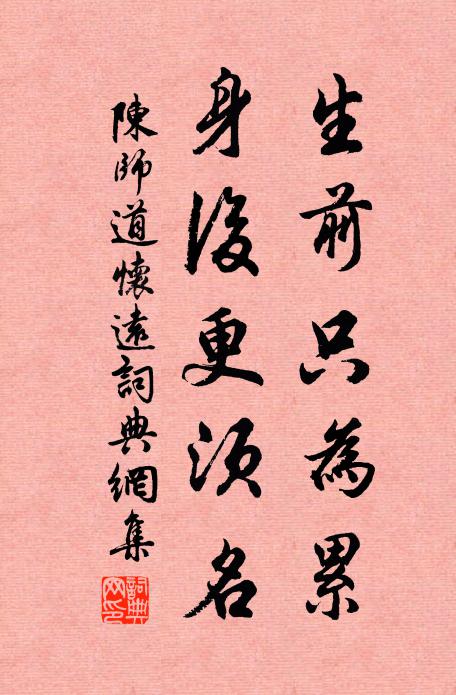 生前只為累
身後更須名
陳師道懷遠詞典網集
詞典網印